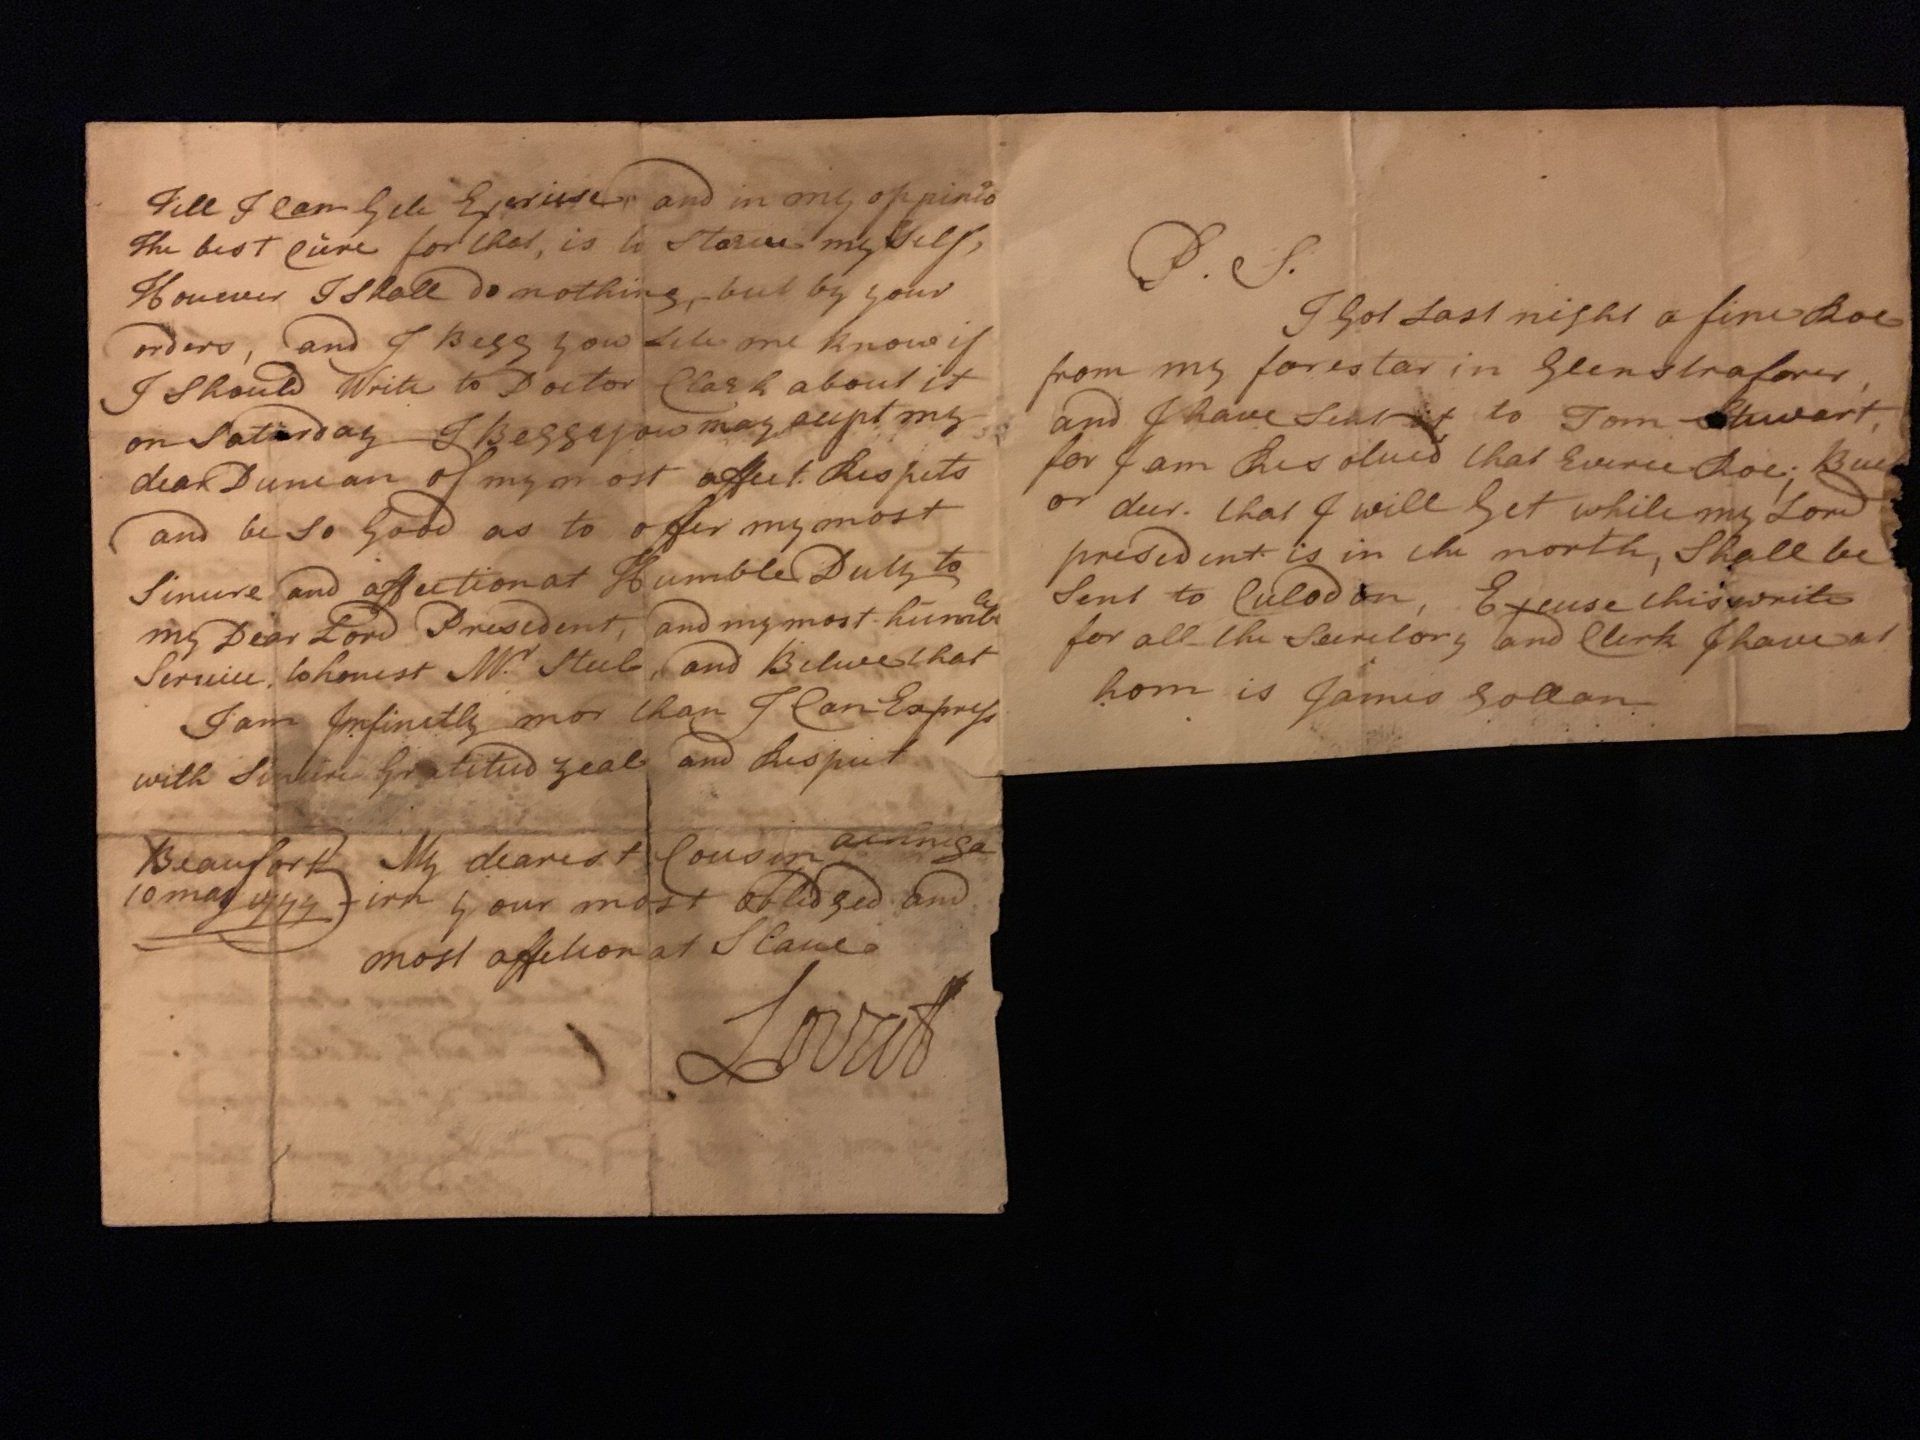 Till I Can Gett Exercise and in my oppinio
the best Cure for that, is to starve my self,
However I shall do nothing, but by your
orders, and I Begg you Lett me know if
I should Write to Doctor Clark about it
on Saturday I Begg you may acept my
dear Duncan of my most affect. Respets
and be so Good as to offer my most
Sincere and affectionat Humble Duty to
my Dear Lord President, and my most humble
Service to honest Mr Steel, and Beleve that
I am Infinetly mor than I Can Express
with Sincere Gratitud zeal and Respect
Beaufort My dearest Cousin
10 may your most obledged and
most affetionat Slave
Lovat
P. S.
I Got Last night a fine Roe
from my forestar in Glenstrafarer,
and I have Sent it to Tom Stuwart,
for I am Resolved that Everie Roe, Buck
or deer. that I will Get while my Lord
president is in the north, Shall be
Sent to Culodon, Excuse this write
for all the Secretory and Clerk I have at
hom is James Gollan